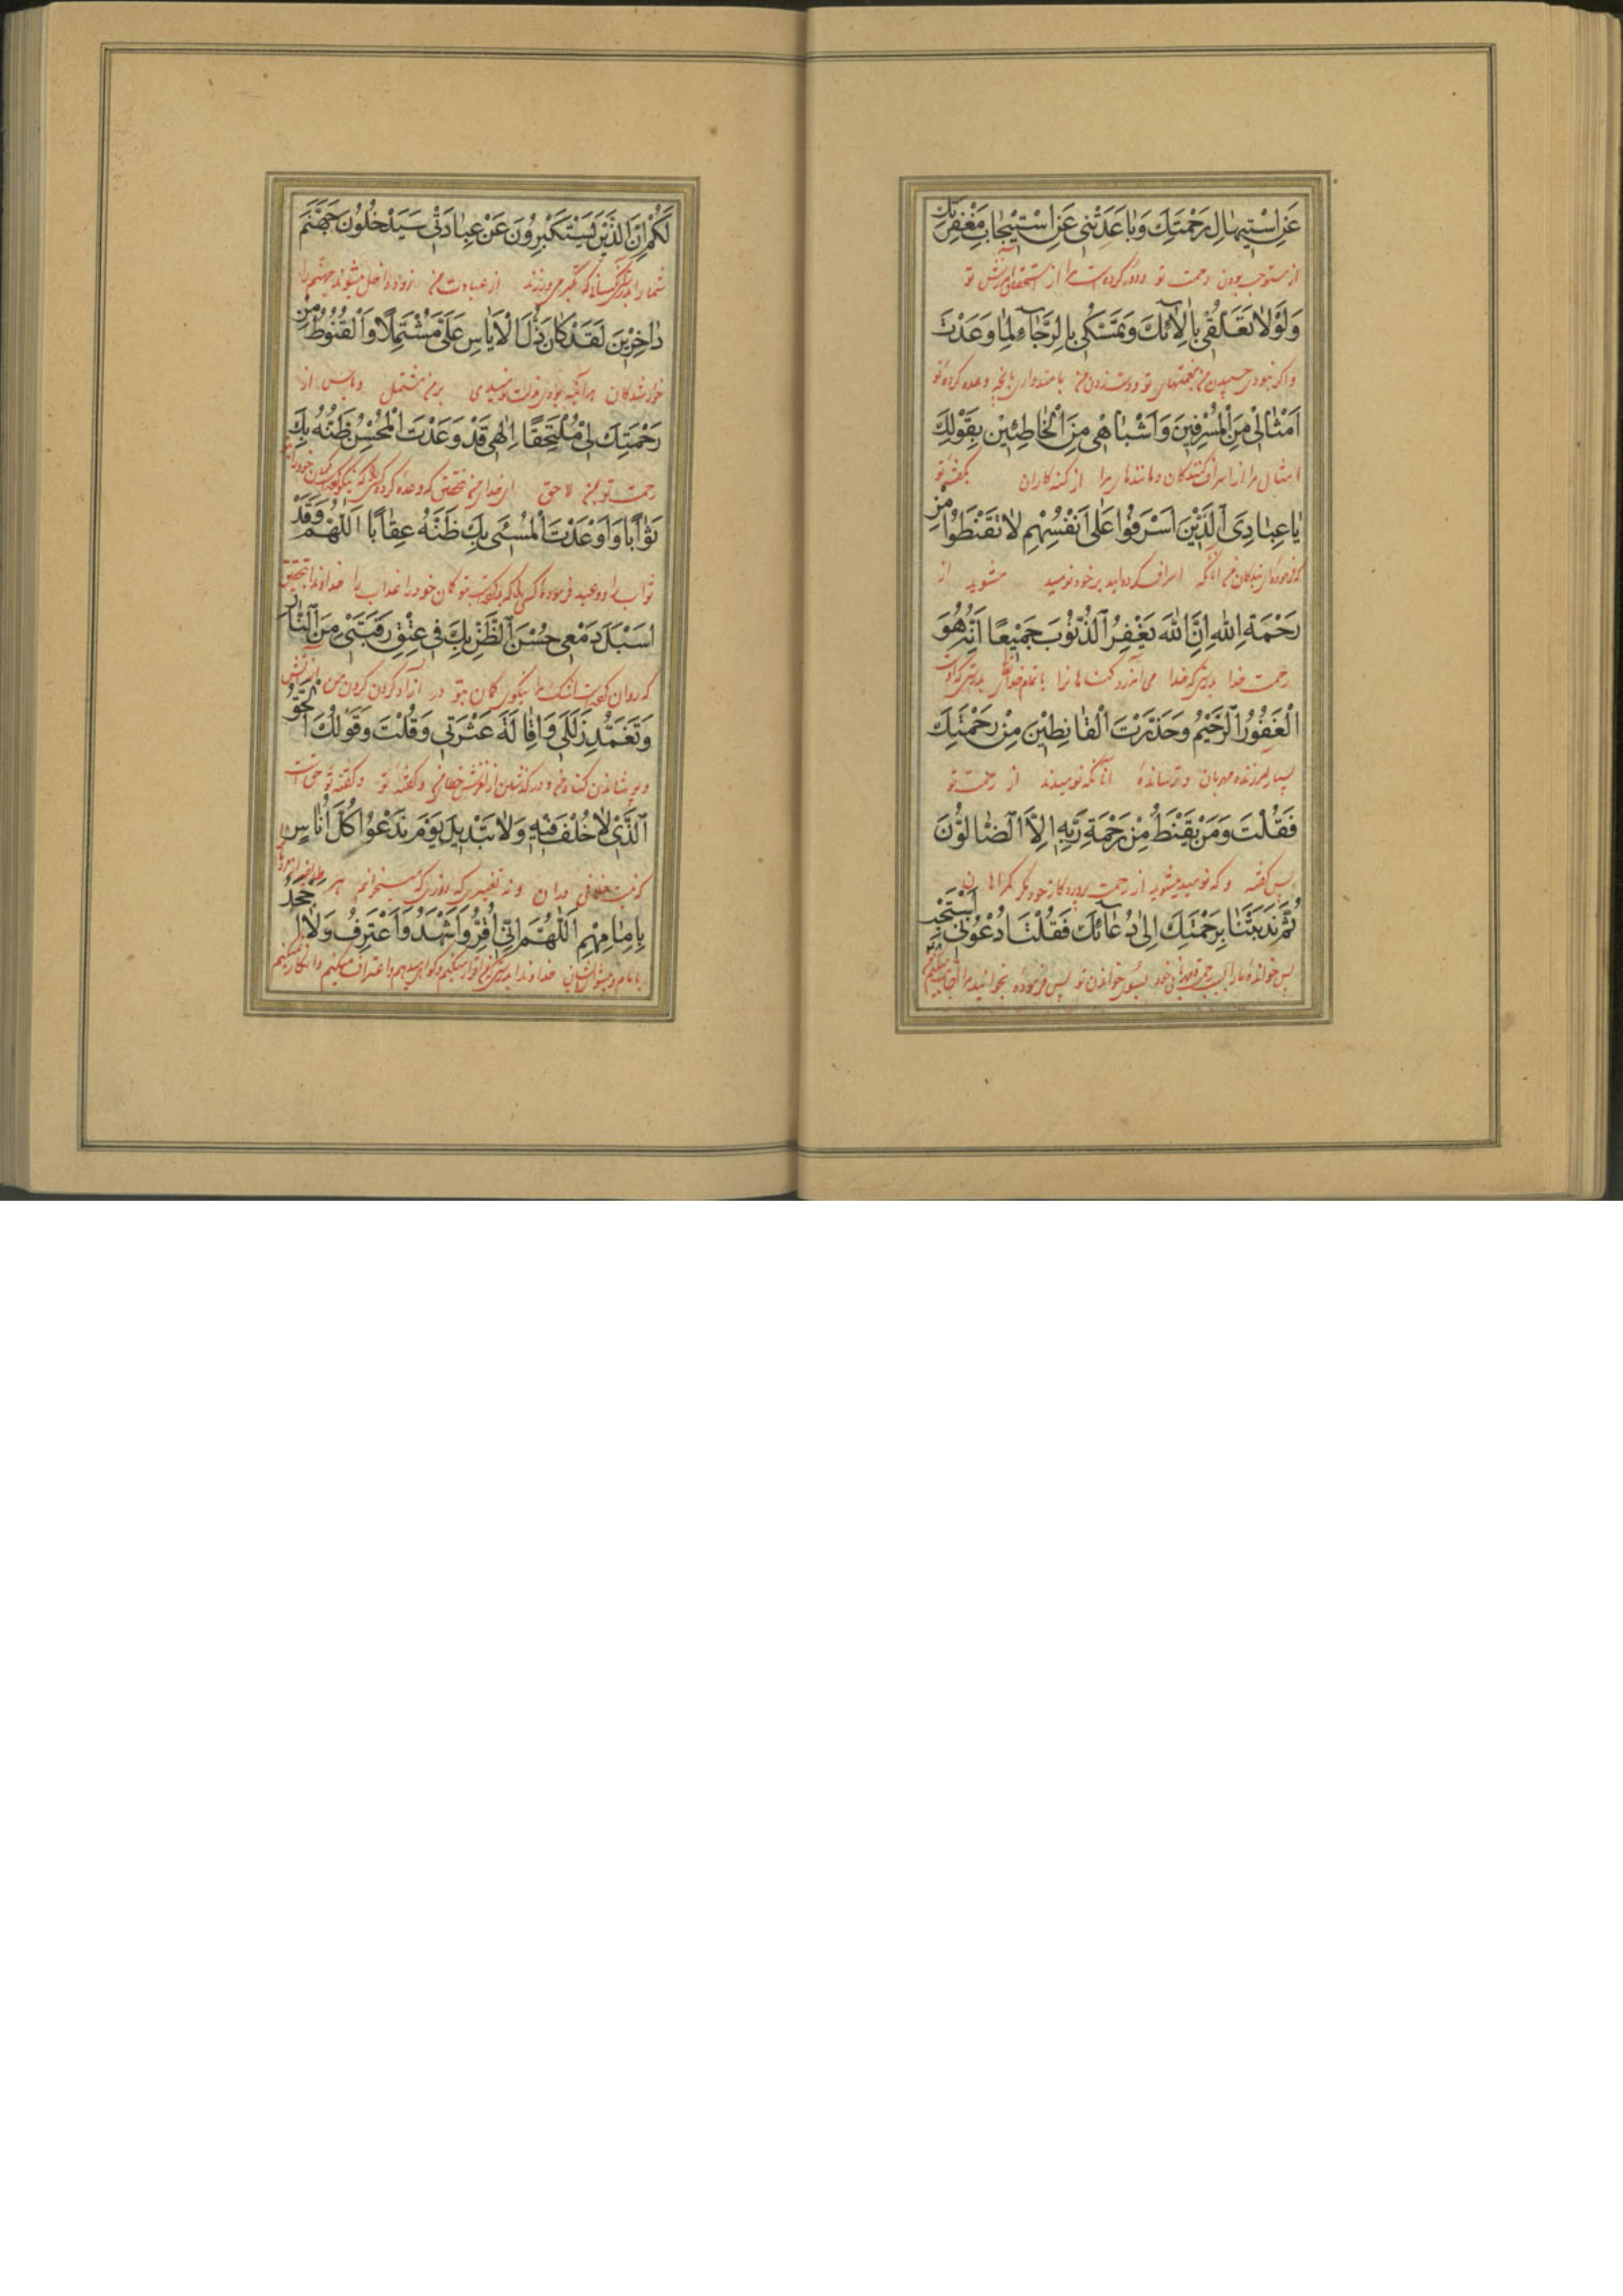 عَنِ اسْتِيهٰالِ رَحْمَتِكَ وَبٰاعَدَتْنِي عَنِ اسْتِيْجٰابِ مَغْفِرَتِكَ
از مستوجب بودن رحمت تو ودور کرده است مرا از استحقاق آمرزش تو
وَلَوْلٰا تَعَلُّقِي بِاٰلٰائِكَ وَتَمَسُّكِي بِالرَّجٰاءِ لِمٰا وَعَدْتَ
واگر نبودی چسپیدن من بنعمتهای تو ودست زدن من بامیدواری بانچه وعده کرده تو
اَمْثٰالِي مِنَ الْمُسْرِفِينَ وَاَشْبٰاهِي مِنَ الْخٰاطِئِينَ بِقَوْلِكَ
امثال مرا از اسراف کنندکان ومانندهای مرا از کنه کاران بگفته تو
يٰا عِبٰادِيَ الَّذِينَ اَسْرَفُوا عَلٰى اَنْفُسِهِمْ لٰا تَقْنَطُوا مِنْ
بندکان من آنانکه اسراف کرده‌اید بر خود نومید مشوید از
رَحْمَةِ اللهِ اِنَّ اللهَ يَغْفِرُ الذُّنُوبَ جَمِيعًا اِنَّهُ هُوَ
رحمت خدا بدرستیکه خدا می آمرزد کناهانرا بدرستیکه اوست
الْغَفُورُ الرَّحِيمُ وَحَذَّرْتَ الْقٰانِطِيْنَ مِنْ رَحْمَتِكَ
بسیار آمرزنده مهربان وترسانده آنانکه نومیدند از رحمت تو
فَقُلْتَ وَمَنْ يَقْنَطُ مِنْ رَحْمَةِ رَبِّهِ اِلَّا الضّٰالُّونَ
پس کفته وکه نومید میشود از رحمت پروردکار خود مکر کمراهان
ثُمَّ نَدَبْتَنٰا بِرَحْمَتِكَ اِلٰى دُعٰائِكَ فَقُلْتَ ادْعُونِي اَسْتَجِبْ
پس خوانده مارا بسبب رحمت خود بسوی خواندن تو پس فرموده بخوانید مرا
لَكُمْ اِنَّ الَّذِينَ يَسْتَكْبِرُونَ عَنْ عِبٰادَتِي سَيَدْخُلُونَ جَهَنَّمَ
شمارا بدرستیکه آنکسانیکه تکبر می ورزند از عبادت من زود داخل میشوند جهنم را
دٰاخِرِينَ لَقَدْ كٰانَ ذُلُّ الْاَيٰاسِ عَلَيَّ مُشْتَمِلًا وَالْقُنُوطُ مِنْ
خوار شدکان هرآینه بودی ذلت نومیدی بر من مشتمل ویاس از
رَحْمَتِكَ بِي مُلْتَحِقًا اِلٰهِي قَدْ وَعَدْتَ الْمُحْسِنَ ظَنَّهُ بِكَ
رحمت تو بمن لاحق ای خدای من بتحقیق که وعده کرده
ثَوٰابًا وَاَوْعَدْتَ الْمُسِئَ بِكَ ظَنَّهُ عِقٰابًا اَللّٰهُمَّ وَقَدْ
ثواب را ووعید فرموده بتو کمان خود را عذاب را خداوندا بتحقیق
اَسْبَلَ دَمْعِي حُسْنَ الظَّنِّ بِكَ فِي عِتْقِ رَقَبَتِي مِنَ النّٰارِ
که روان اشک مرا نیکوی کمان بتو در آزاد کردن کردن من از آتش
وَتَغَمُّدِ زَلَلِي وَاِقٰالَةِ عَثْرَتِي وَقُلْتَ وَقَوْلُكَ الْحَقُّ
وپوشاندن کناه من ودر کذشتن از لغزش من وکفته تو وکفته تو حق است
الَّذِي لٰا خُلْفَ فِيهِ وَلٰا تَبْدِيلَ يَوْمَ نَدْعُوا كُلَّ اُنٰاسٍ
که نیست خلافی دران ونه تغییری که روزیکه میخوانم هر
بِاِمٰامِهِمْ اَللّٰهُمَّ اِنِّي اُقِرُّ وَاَشْهَدُ وَاَعْتَرِفُ وَلٰا اَجْحَدُ
بامام وپیشوای شان خداوندا بدرستیکه من اقرار میکنم وکواهی میدهم واعتراف میکنم وانکار نمیکنم